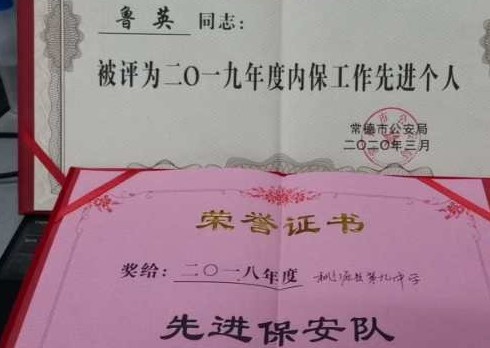 鲁英 同志：
被评为二〇一九年度内保工作先进个人
常德市公安局
二〇二〇年三月
荣誉证书
奖给：二〇一八年度 桃源县第九中学
先进保安队